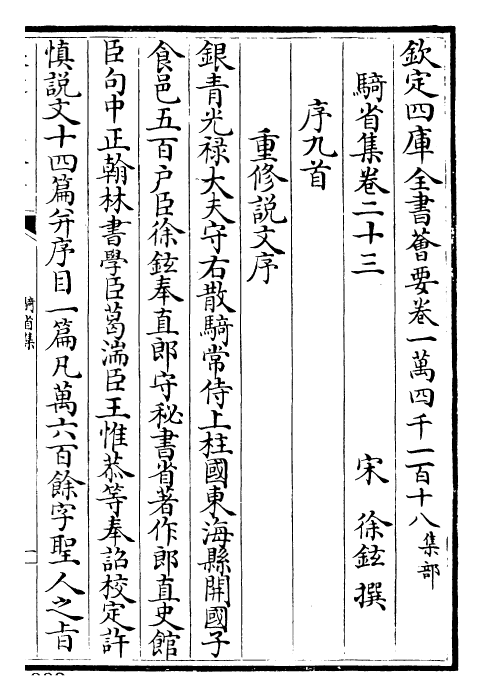 欽定四庫全書薈要卷一萬四千一百十八集部
騎省集卷二十三
宋 徐鉉 撰
序九首
重修説文序
銀青光禄大夫守右散騎常侍上柱國東海縣開國子
食邑五百户臣徐鉉奉直郎守秘書省著作郎直史館
臣句中正翰林書學臣葛湍臣王惟恭等奉詔校定許
慎説文十四篇并序目一篇凡萬六百餘字聖人之旨
騎省集